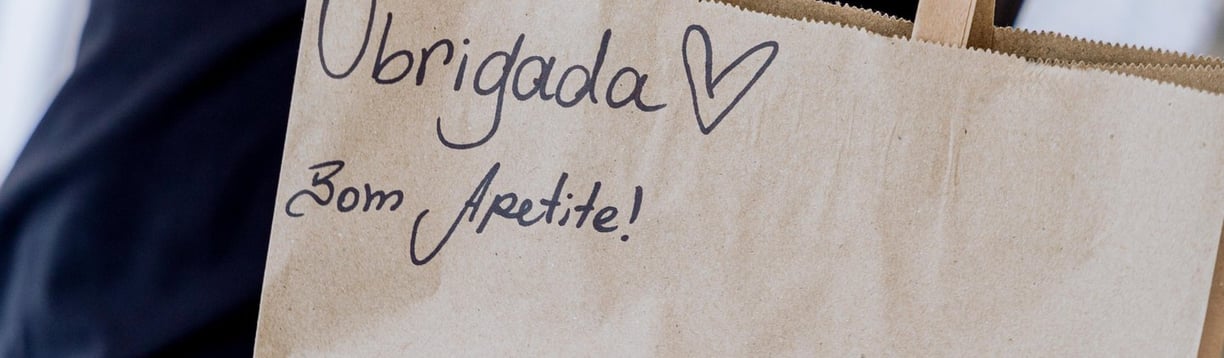 Obrigada
Bom Apetite!